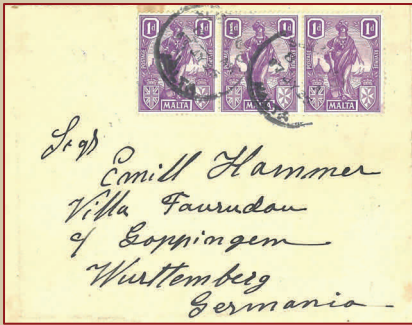 1d 1d 1d
MALTA MALTA MALTA
Emill Hammer
Villa Faurndau
Goppingem
Wurttemberg
Germania